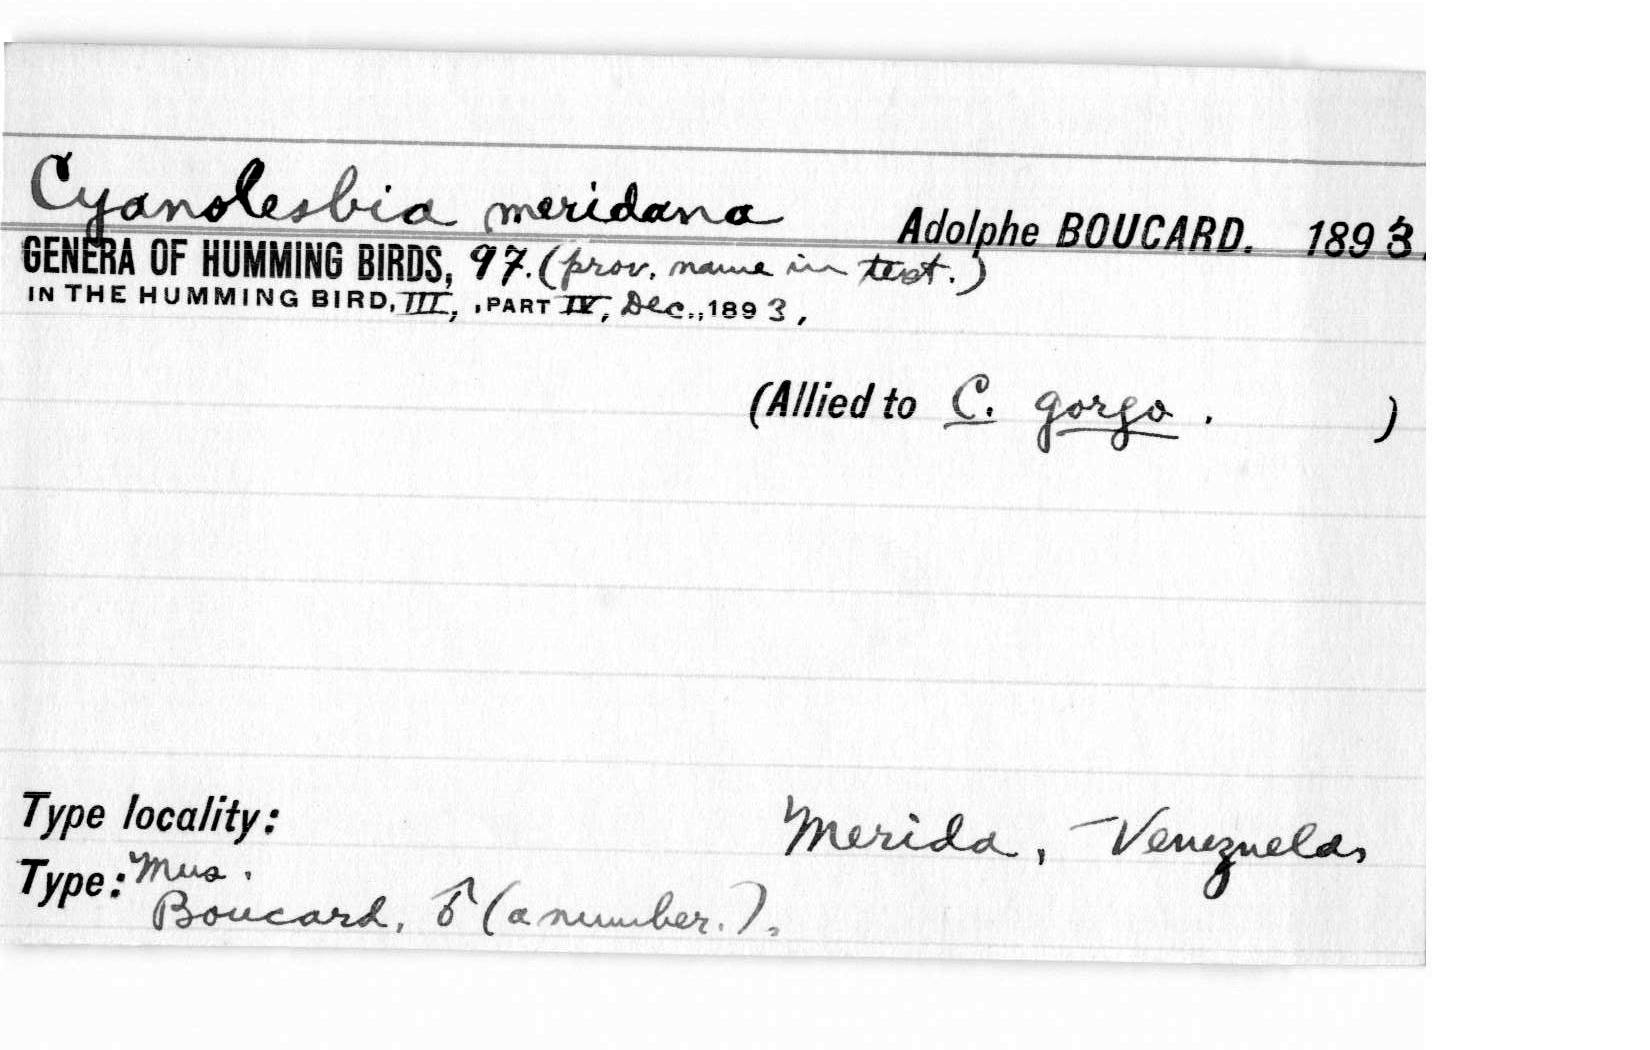 Cyanolesbia meridana Adolphe BOUCARD. 1893.
GENERA OF HUMMING BIRDS, 97. (prov. name in text.)
IN THE HUMMING BIRD, III, , PART IV, Dec., 1893,
(Allied to C. gorgo. )
Type locality: Merida, Venezuela,
Type: Mus.
Boucard, ♂ (a number.).